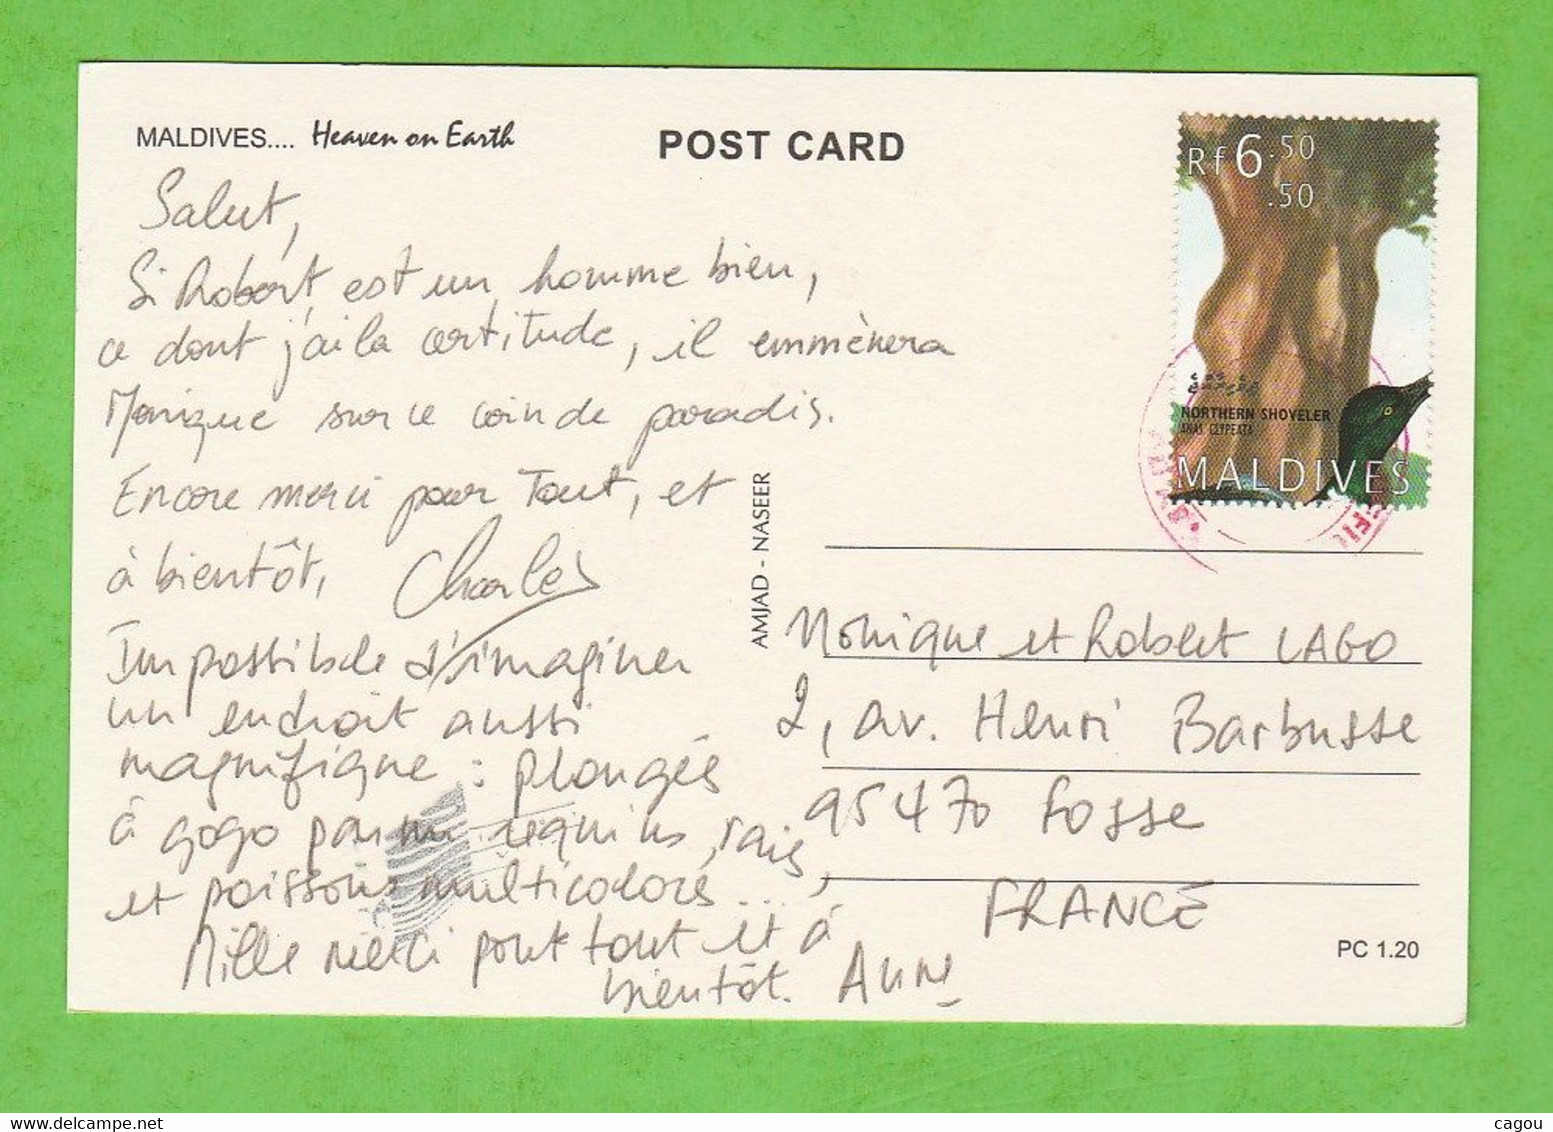 MALDIVES.... Heaven on Earth
POST CARD
Salut,
Si Robert est un homme bien,
ce dont j'ai la certitude, il emmènera
Monique sur ce coin de paradis.
Encore merci pour Tout, et
à bientôt, Charles
Impossible d'imaginer
un endroit aussi
magnifique : plongées
à gogo parmi requins, raies,
et poissons multicolores...,
Mille merci pour tout et à
bientôt. Anne
AMJAD - NASEER
Rf 6.50
.50
NORTHERN SHOVELER
ANAS CLYPEATA
MALDIVES
Monique et Robert LAGO
2, av. Henri Barbusse
95470 Fosse
FRANCE
PC 1.20
cagou